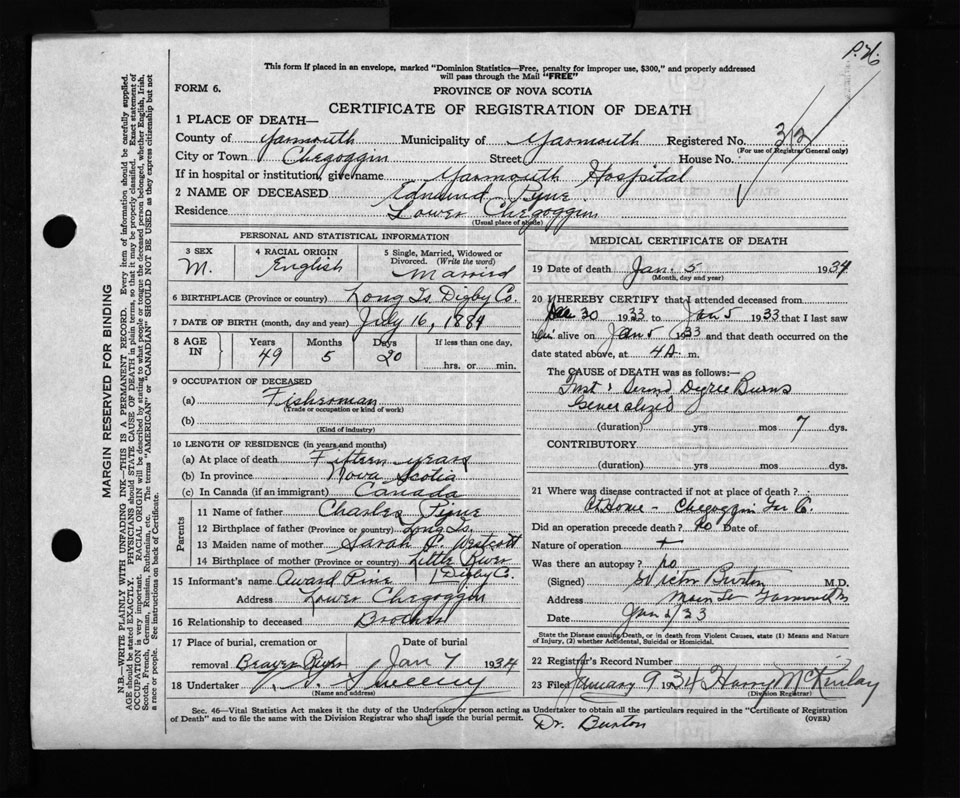 P.H.
This form if placed in an envelope, marked "Dominion Statistics—Free, penalty for improper use, $300," and properly addressed
will pass through the Mail "FREE"
FORM 6.
PROVINCE OF NOVA SCOTIA
CERTIFICATE OF REGISTRATION OF DEATH
1 PLACE OF DEATH—
County of Yarmouth Municipality of Yarmouth Registered No. 32
(For use of Registrar General only)
City or Town Chegoggin Street House No.
If in hospital or institution, give name Yarmouth Hospital
2 NAME OF DECEASED Edmund Pyne
Residence Lower Chegoggin
(Usual place of abode)
PERSONAL AND STATISTICAL INFORMATION
3 SEX 4 RACIAL ORIGIN 5 Single, Married, Widowed or
Divorced. (Write the word)
M. English Married
6 BIRTHPLACE (Province or country) Long Is. Digby Co.
7 DATE OF BIRTH (month, day and year) July 16, 1884
8 AGE IN Years Months Days If less than one day,
49 5 20 hrs. or min.
9 OCCUPATION OF DECEASED
(a) Fisherman
(Trade or occupation or kind of work)
(b)
(Kind of industry)
10 LENGTH OF RESIDENCE (in years and months)
(a) At place of death Fifteen years
(b) In province Nova Scotia
(c) In Canada (if an immigrant) Canada
Parents
11 Name of father Charles Pyne
12 Birthplace of father (Province or country) Long Is.
13 Maiden name of mother Sarah Westcott
14 Birthplace of mother (Province or country) Little River
Digby Co.
15 Informant's name Award Pine
Address Lower Chegoggin
16 Relationship to deceased Brother
17 Place of burial, cremation or Date of burial
removal Jan 7 1934
18 Undertaker Sweeny
(Name and address)
MEDICAL CERTIFICATE OF DEATH
19 Date of death Jan. 5 1934
(Month, day and year)
20 I HEREBY CERTIFY that I attended deceased from
Dec 30 1933 to Jan 5 1933 that I last saw
him alive on Jan 5 1933 and that death occurred on the
date stated above, at 4 A m.
The CAUSE OF DEATH was as follows:—
First & Second Degree Burns
Generalized
(duration) yrs mos 7 dys.
CONTRIBUTORY
(duration) yrs mos dys.
21 Where was disease contracted if not at place of death?
At Home - Chegoggin
Did an operation precede death? no Date of
Nature of operation
Was there an autopsy? no
(Signed) Victor Burton M.D.
Address Main St Yarmouth
Date Jan
State the Disease causing Death, or in death from Violent Causes, state (1) Means and Nature
of Injury, (2) whether Accidental, Suicidal or Homicidal.
22 Registrar's Record Number
23 Filed January 9 1934 Harry McKinlay
(Division Registrar)
Sec. 46—Vital Statistics Act makes it the duty of the Undertaker or person acting as Undertaker to obtain all the particulars required in the "Certificate of Registration
of Death" and to file the same with the Division Registrar who shall issue the burial permit.
(OVER)
Dr. Burton
MARGIN RESERVED FOR BINDING
N.B.—WRITE PLAINLY WITH UNFADING INK—THIS IS A PERMANENT RECORD. Every item of information should be carefully supplied.
AGE should be stated EXACTLY. PHYSICIANS should STATE CAUSE OF DEATH in plain terms, so that it may be properly classified. Exact statement of
OCCUPATION is very important. RACIAL ORIGIN will be described by stating to what people or tongue the deceased person belonged, whether English, Irish,
Scotch, French, German, Russian, Ruthenian, etc. The terms "AMERICAN" or "CANADIAN" SHOULD NOT BE USED as they express citizenship but not
a race or people. See instructions on back of Certificate.